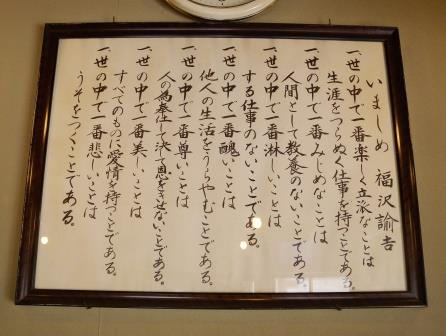 いましめ 福沢諭吉
一、世の中で一番楽しく立派なことは
生涯をつらぬく仕事を持つことである。
一、世の中で一番みじめなことは
人間として教養のないことである。
一、世の中で一番淋しいことは
する仕事のないことである。
一、世の中で一番醜いことは
他人の生活をうらやむことである。
一、世の中で一番尊いことは
人の為奉仕して決て恩をきせないことである。
一、世の中で一番美しいことは
すべてのものに愛情を持つことである。
一、世の中で一番悲しいことは
うそをつくことである。